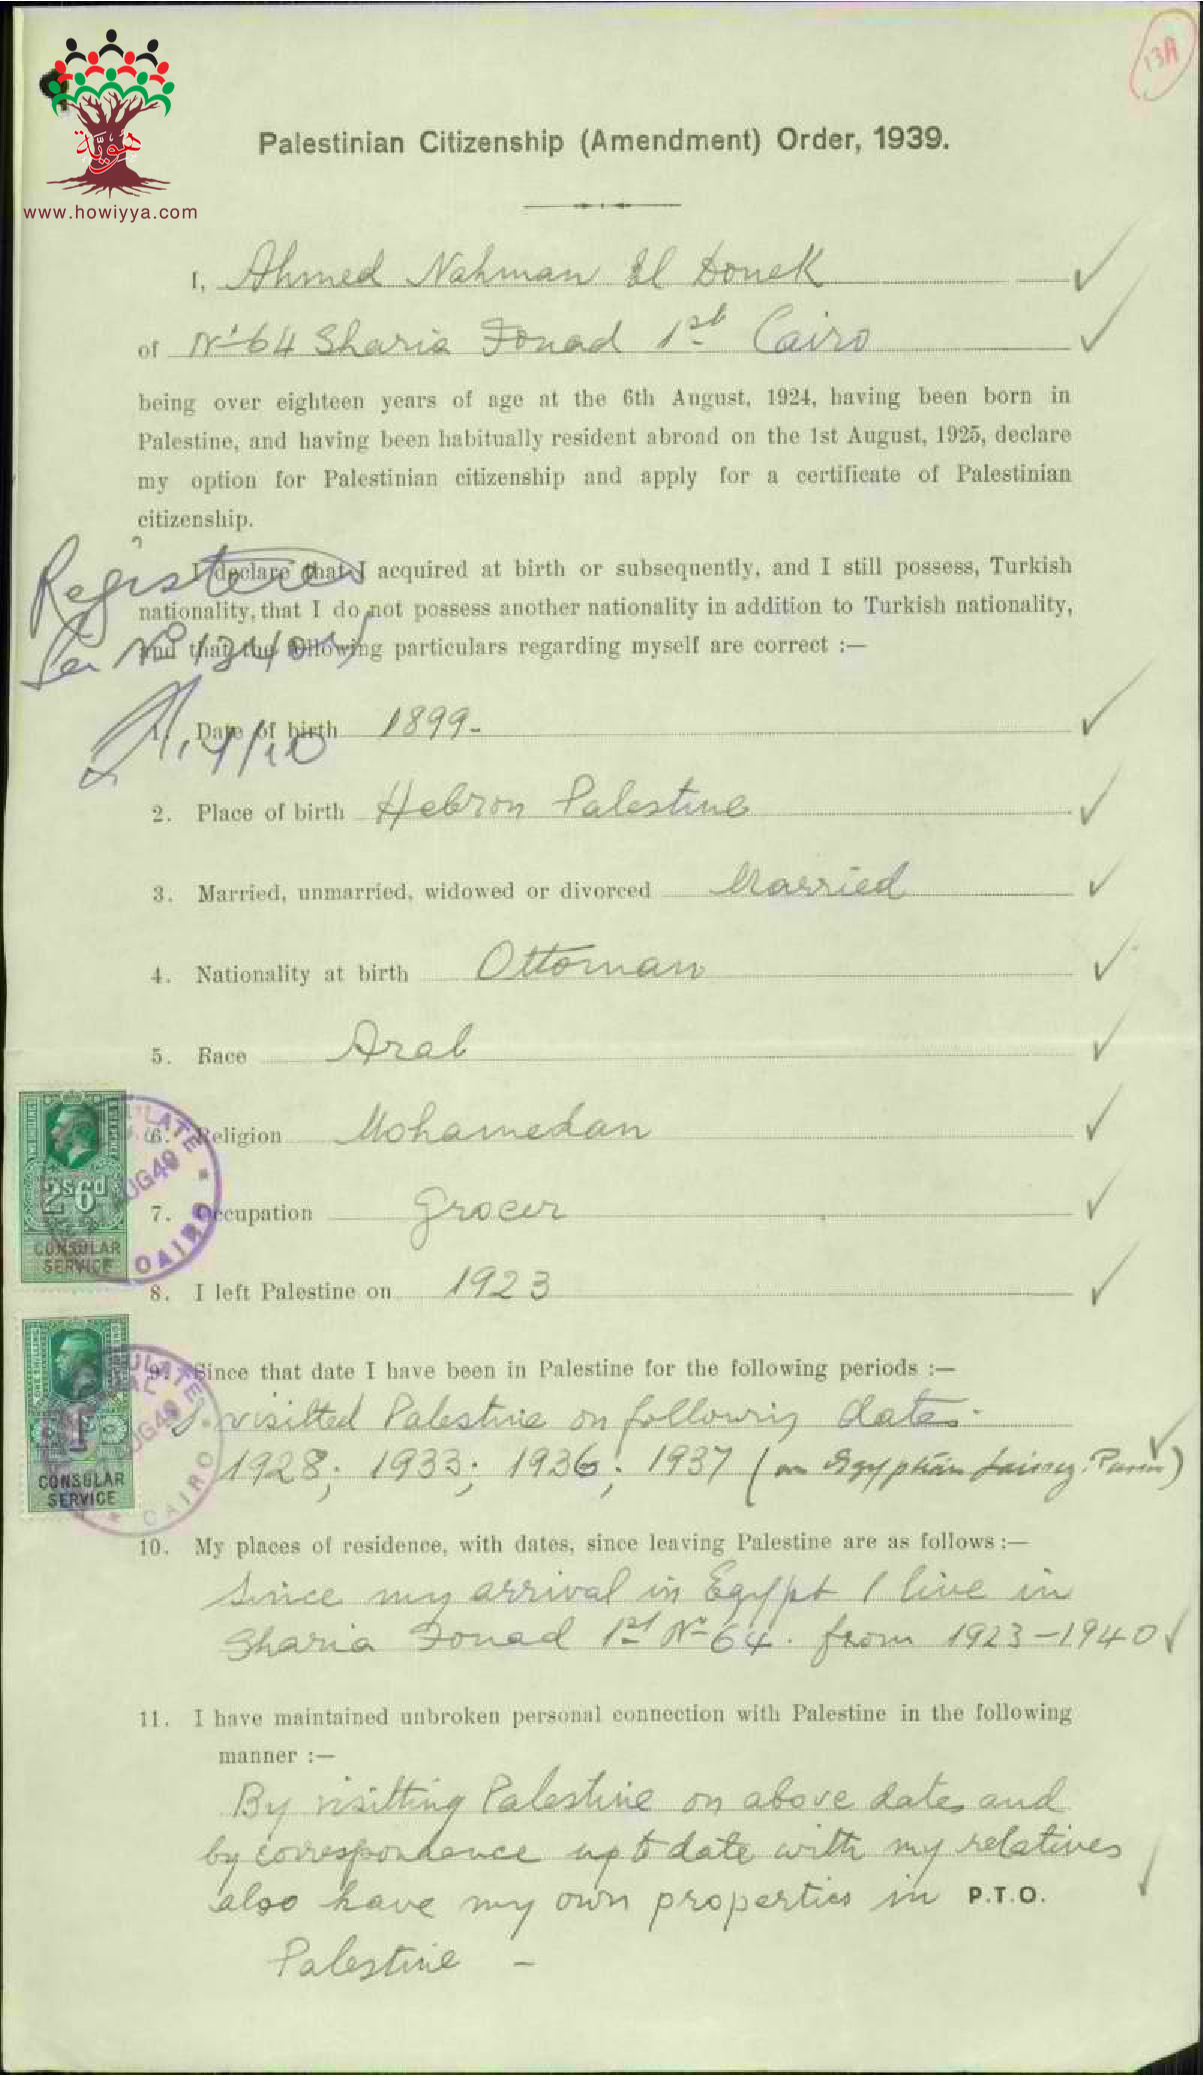 13A
هويّة
www.howiyya.com
Palestinian Citizenship (Amendment) Order, 1939.
I, Ahmed Nahman El Douek
of Nº 64 Sharia Fouad 1st Cairo
being over eighteen years of age at the 6th August, 1924, having been born in
Palestine, and having been habitually resident abroad on the 1st August, 1925, declare
my option for Palestinian citizenship and apply for a certificate of Palestinian
citizenship.
Registered
I declare that I acquired at birth or subsequently, and I still possess, Turkish
nationality, that I do not possess another nationality in addition to Turkish nationality,
and that the following particulars regarding myself are correct :—
1. Date of birth 1899-
2. Place of birth Hebron Palestine
3. Married, unmarried, widowed or divorced Married
4. Nationality at birth Ottoman
5. Race Arab
6. Religion Mohamedan
7. Occupation Grocer
8. I left Palestine on 1923
2s6d
CONSULAR
SERVICE
CAIRO
9. Since that date I have been in Palestine for the following periods :—
I visitted Palestine on following dates
1928; 1933; 1936; 1937 (on Egyptian Laissez. Passer)
CONSULAR
SERVICE
CAIRO
10. My places of residence, with dates, since leaving Palestine are as follows :—
Since my arrival in Egypt I live in
Sharia Fouad 1st Nº 64. from 1923-1940
11. I have maintained unbroken personal connection with Palestine in the following
manner :—
By visitting Palestine on above dates and
by correspondence up to date with my relatives
also have my own properties in P.T.O.
Palestine -